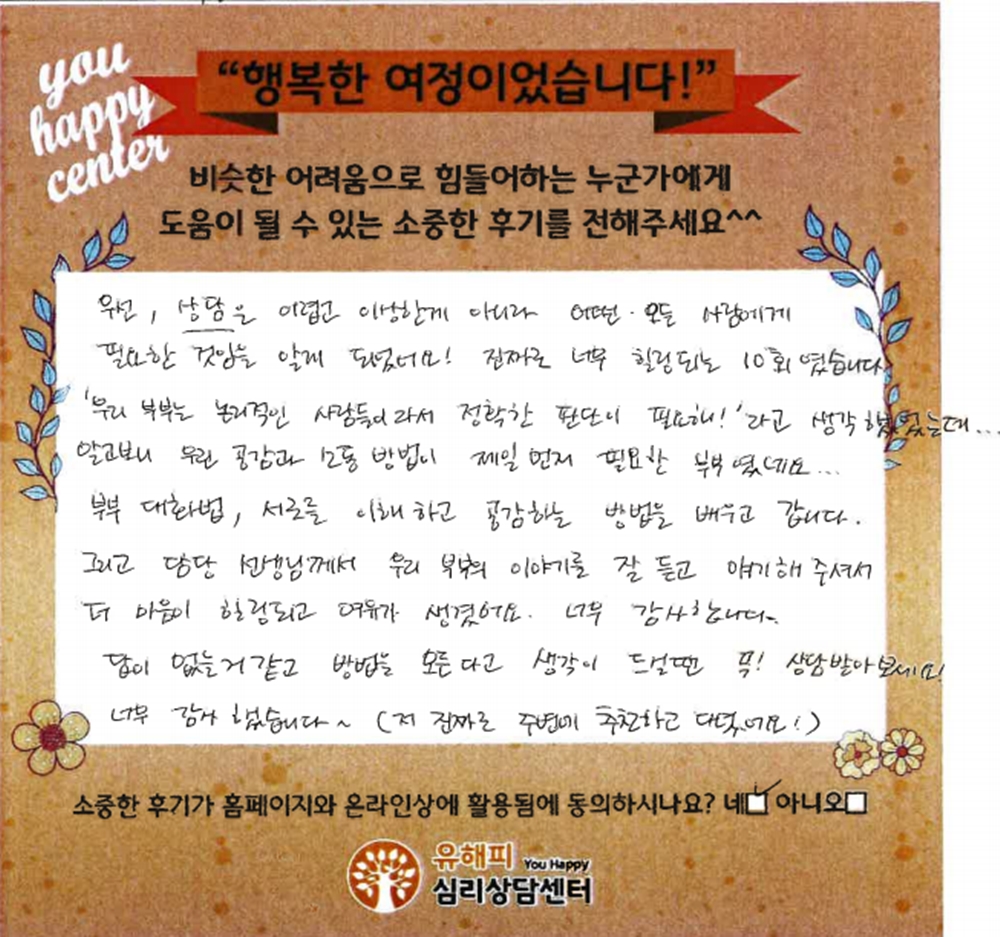 you
happy
center
“행복한 여정이었습니다!”
비슷한 어려움으로 힘들어하는 누군가에게
도움이 될 수 있는 소중한 후기를 전해주세요^^
우선, 상담은 어렵고 이상한게 아니라 어떤·모든 사람에게
필요한 것임을 알게 되었어요! 진짜로 너무 힐링되는 10회였습니다
'우리 부부는 논리적인 사람들이라서 정확한 판단이 필요해!'라고 생각했었는데...
알고보니 우린 공감과 소통 방법이 제일 먼저 필요한 부부였네요...
부부 대화법, 서로를 이해하고 공감하는 방법을 배우고 갑니다.
그리고 담당 선생님께서 우리 부부의 이야기를 잘 듣고 얘기해 주셔서
더 마음이 힐링되고 여유가 생겼어요. 너무 감사합니다~
답이 없는거 같고 방법을 모른다고 생각이 드실땐 꼭! 상담받아보세요!
너무 감사했습니다~ (저 진짜로 주변에 추천하고 다녔어요!)
소중한 후기가 홈페이지와 온라인상에 활용됨에 동의하시나요? 네☑ 아니오☐
유해피 You Happy
심리상담센터